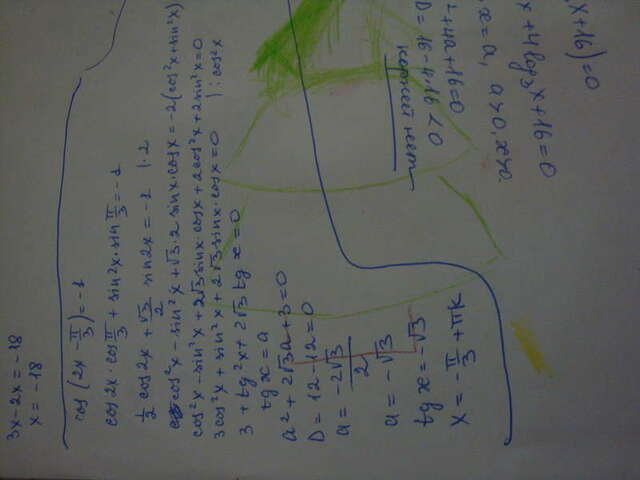 3x-2x=-18
x=-18
cos(2x-π/3)=-1
cos2x·cosπ/3+sin²x·sinπ/3=-1
1/2 cos2x+√3/2 sin2x=-1 |·2
cos²x-sin²x+√3·2sinx·cosx=-2(cos²x+sin²x)
cos²x-sin²x+2√3sinx·cosx+2cos²x+2sin²x=0
3cos²x+sin²x+2√3sinx·cosx=0 |:cos²x
3+tg²x+2√3tgx=0
tgx=a
a²+2√3a+3=0
D=12-12=0
a=-2√3/2
a=-√3
tgx=-√3
x=-π/3+πk
x+16)=0
x+4log₃x+16=0
x=a, a>0, x>0.
²+4a+16=0
D=16-4·16<0
корней нет